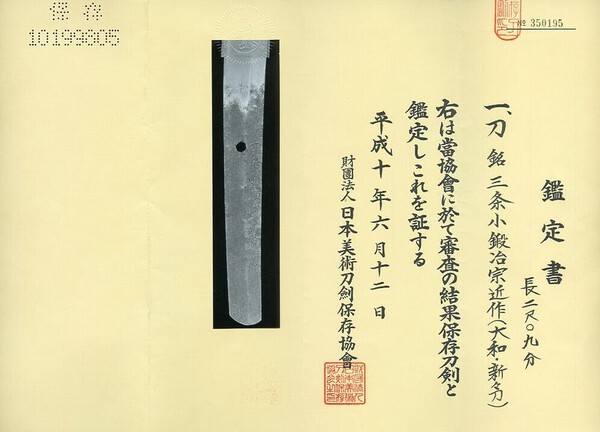 保存
10199805
№ 350195
鑑定書
一、刀 銘 三条小鍛冶宗近作(大和・新々刀)
長二尺〇九分
右は當協會に於て審査の結果保存刀剣と
鑑定しこれを証する
平成十年六月十二日
財團法人日本美術刀劍保存協會